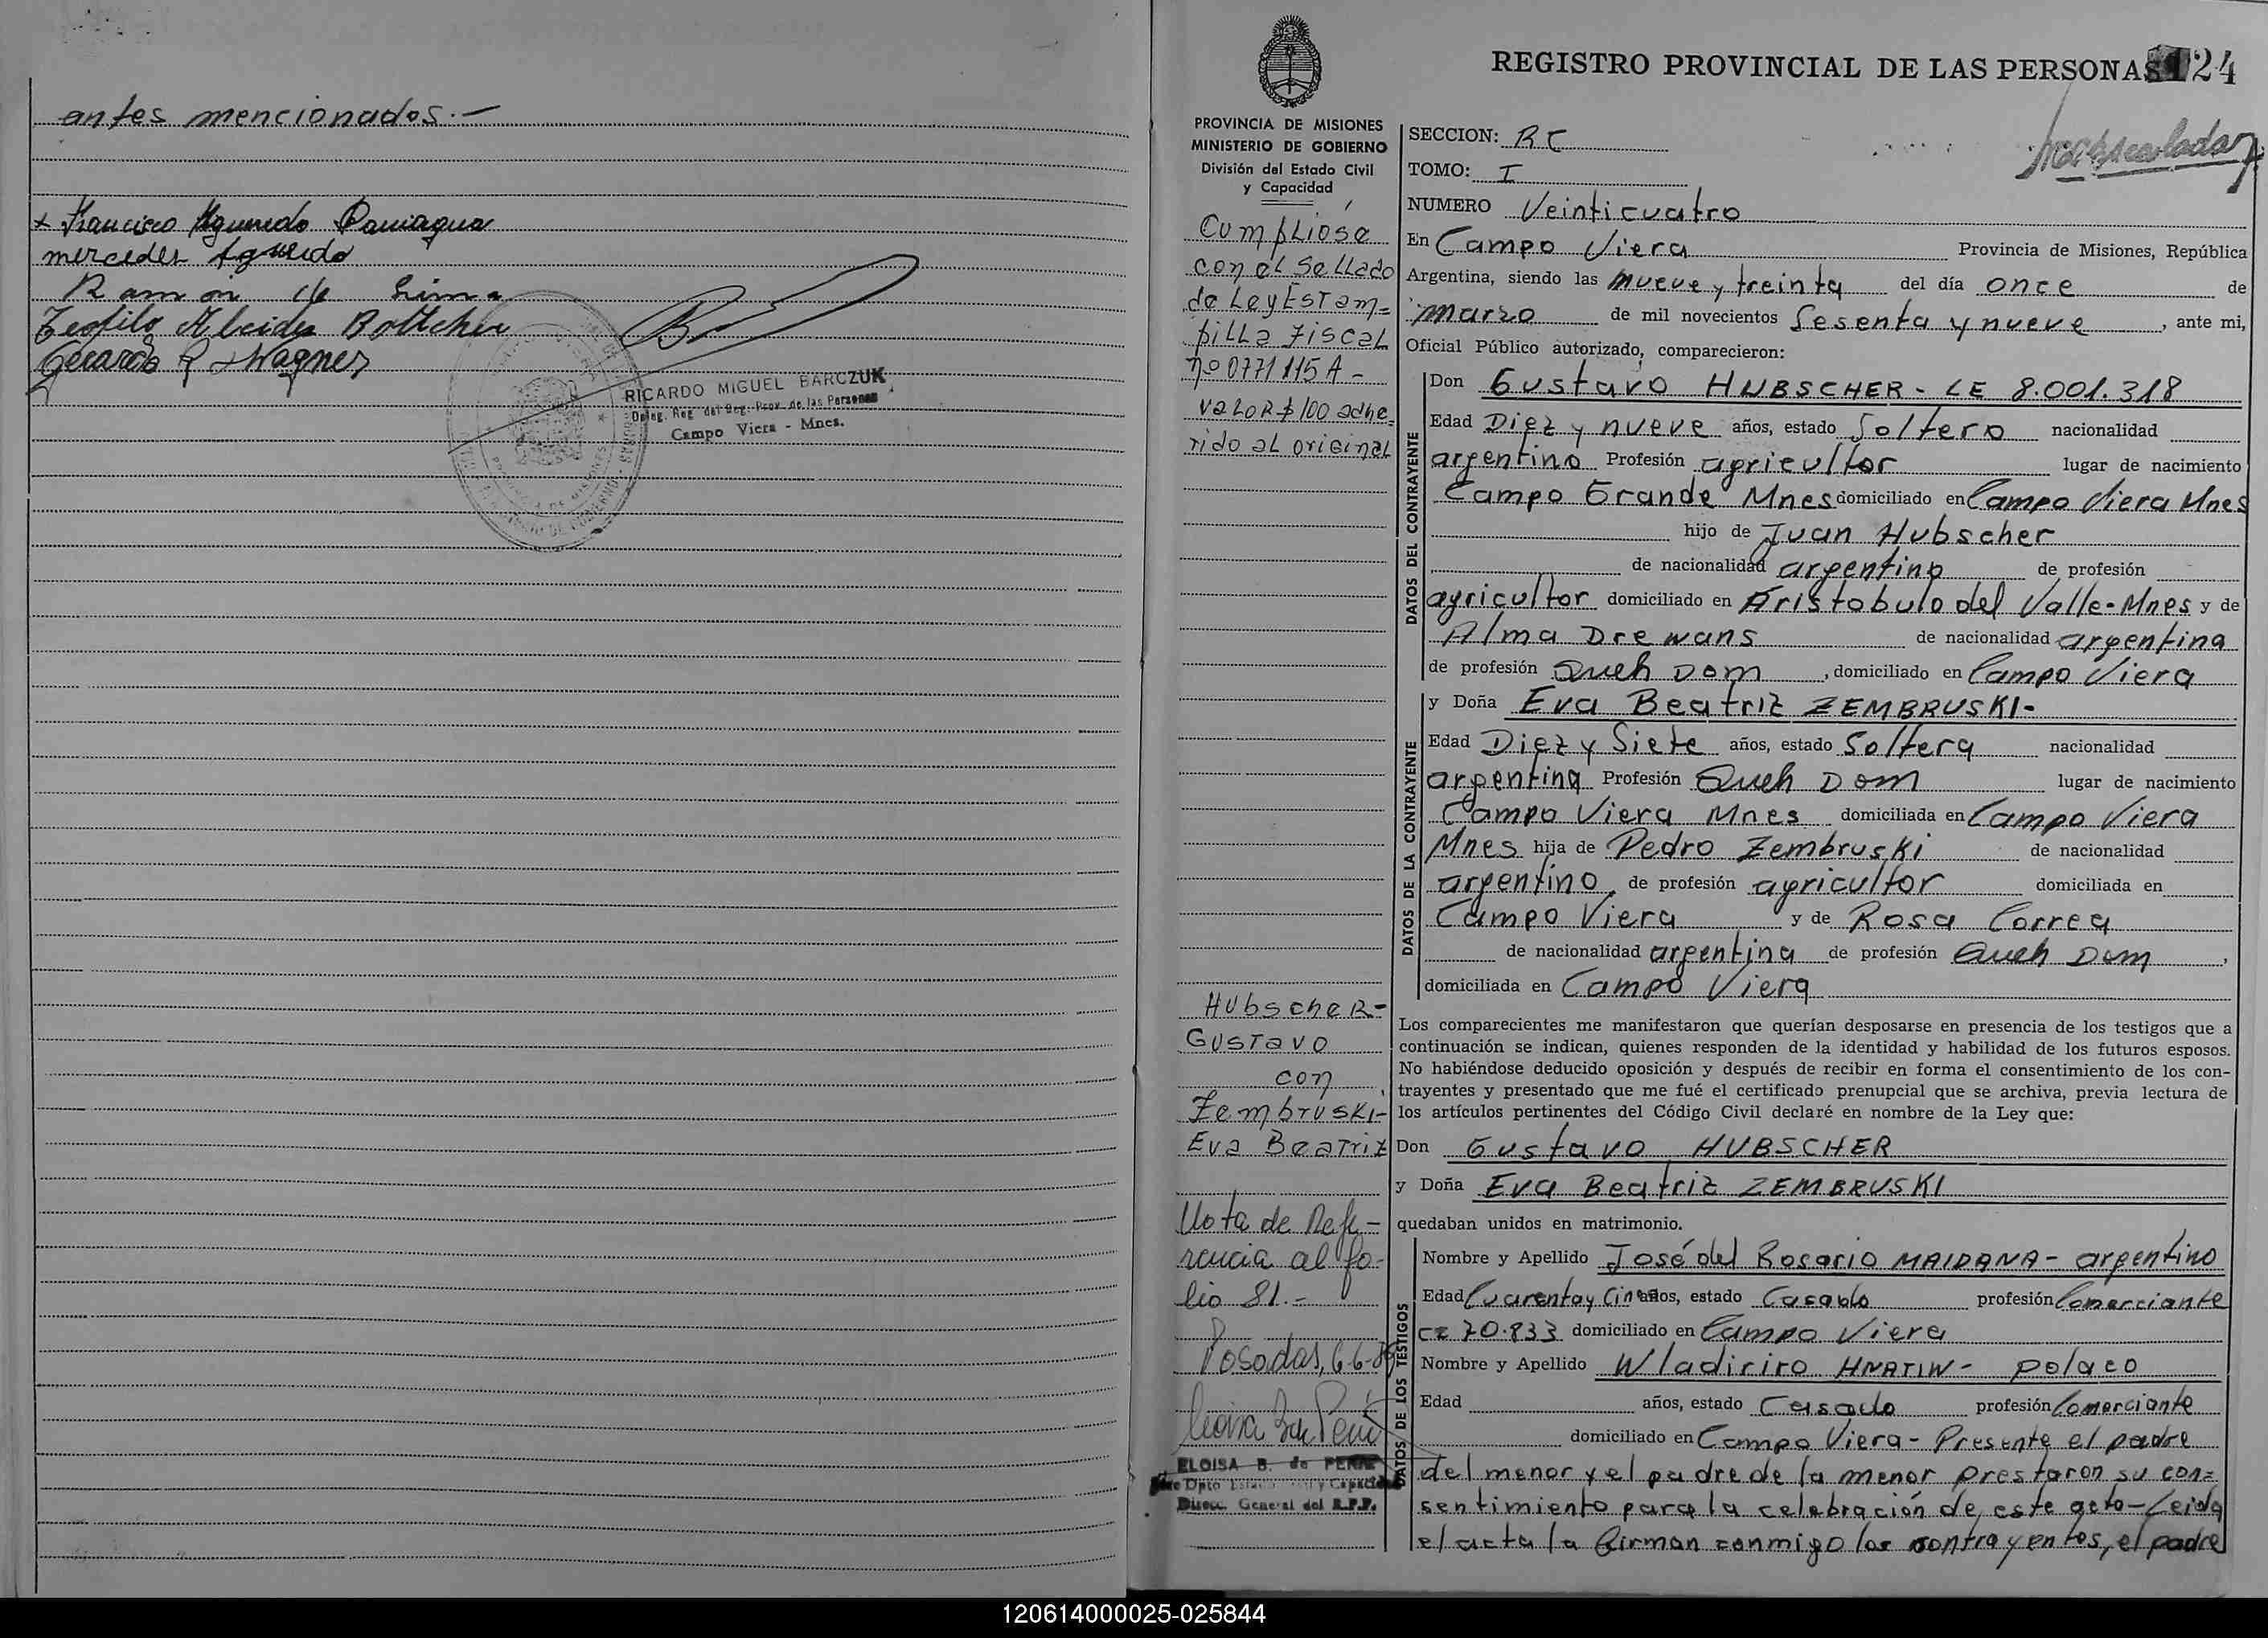 antes mencionados.-
x Francisco Agueredo Paniagua
mercedes Agueredo
Ramón de Lima
Teofilo Alcides Bottcher
Gerardo R Wagner
RICARDO MIGUEL BARCZUK
Deleg. Reg. del Reg. Prov. de las Personas
Campo Viera - Mnes.
REGISTRO PROVINCIAL DE LAS PERSONAS 24
PROVINCIA DE MISIONES
MINISTERIO DE GOBIERNO
División del Estado Civil
y Capacidad
Cumplióse
con el Sellado
de Ley Estam=
pilla Fiscal
nº 0771115A -
Valor $100 adhe=
rido al original
Hubscher-
Gustavo
con
Zembruski-
Eva Beatriz
Nota de Refe-
rencia al fo-
lio 81.-
Posadas, 6-6-
ELOISA B. de
Dpto Estado Civil y Capacidad
Direcc. General del R.P.P.
SECCION: RC
TOMO: I
NUMERO Veinticuatro
En Campo Viera Provincia de Misiones, República
Argentina, siendo las nueve y treinta del día once de
marzo de mil novecientos Sesenta y nueve, ante mi,
Oficial Público autorizado, comparecieron:
DATOS DEL CONTRAYENTE
Don Gustavo HUBSCHER - LE 8.001.318
Edad Diez y nueve años, estado Soltero nacionalidad
argentino Profesión agricultor lugar de nacimiento
Campo Grande Mnes domiciliado en Campo Viera Mnes
hijo de Juan Hubscher
de nacionalidad argentino de profesión
agricultor domiciliado en Aristobulo del Valle-Mnes y de
Alma Drewans de nacionalidad argentina
de profesión Queh Dom, domiciliado en Campo Viera
DATOS DE LA CONTRAYENTE
y Doña Eva Beatriz ZEMBRUSKI-
Edad Diez y Siete años, estado Soltera nacionalidad
argentina Profesión Queh Dom lugar de nacimiento
Campo Viera Mnes domiciliada en Campo Viera
Mnes hija de Pedro Zembruski de nacionalidad
argentino, de profesión agricultor domiciliada en
Campo Viera y de Rosa Correa
de nacionalidad argentina de profesión Queh Dom,
domiciliada en Campo Viera
Los comparecientes me manifestaron que querían desposarse en presencia de los testigos que a
continuación se indican, quienes responden de la identidad y habilidad de los futuros esposos.
No habiéndose deducido oposición y después de recibir en forma el consentimiento de los con-
trayentes y presentado que me fué el certificado prenupcial que se archiva, previa lectura de
los artículos pertinentes del Código Civil declaré en nombre de la Ley que:
Don Gustavo HUBSCHER
y Doña Eva Beatriz ZEMBRUSKI
quedaban unidos en matrimonio.
DATOS DE LOS TESTIGOS
Nombre y Apellido José del Rosario MAIDANA - argentino
Edad Cuarenta y Cin años, estado Casado profesión Comerciante
CI 70.833 domiciliado en Campo Viera
Nombre y Apellido Wladiriro HNATIW - polaco
Edad años, estado Casado profesión Comerciante
domiciliado en Campo Viera - Presente el padre
del menor y el padre de la menor prestaron su con=
sentimiento para la celebración de este acto - Leida
el acta la firman conmigo los contrayentes, el padre
120614000025-025844